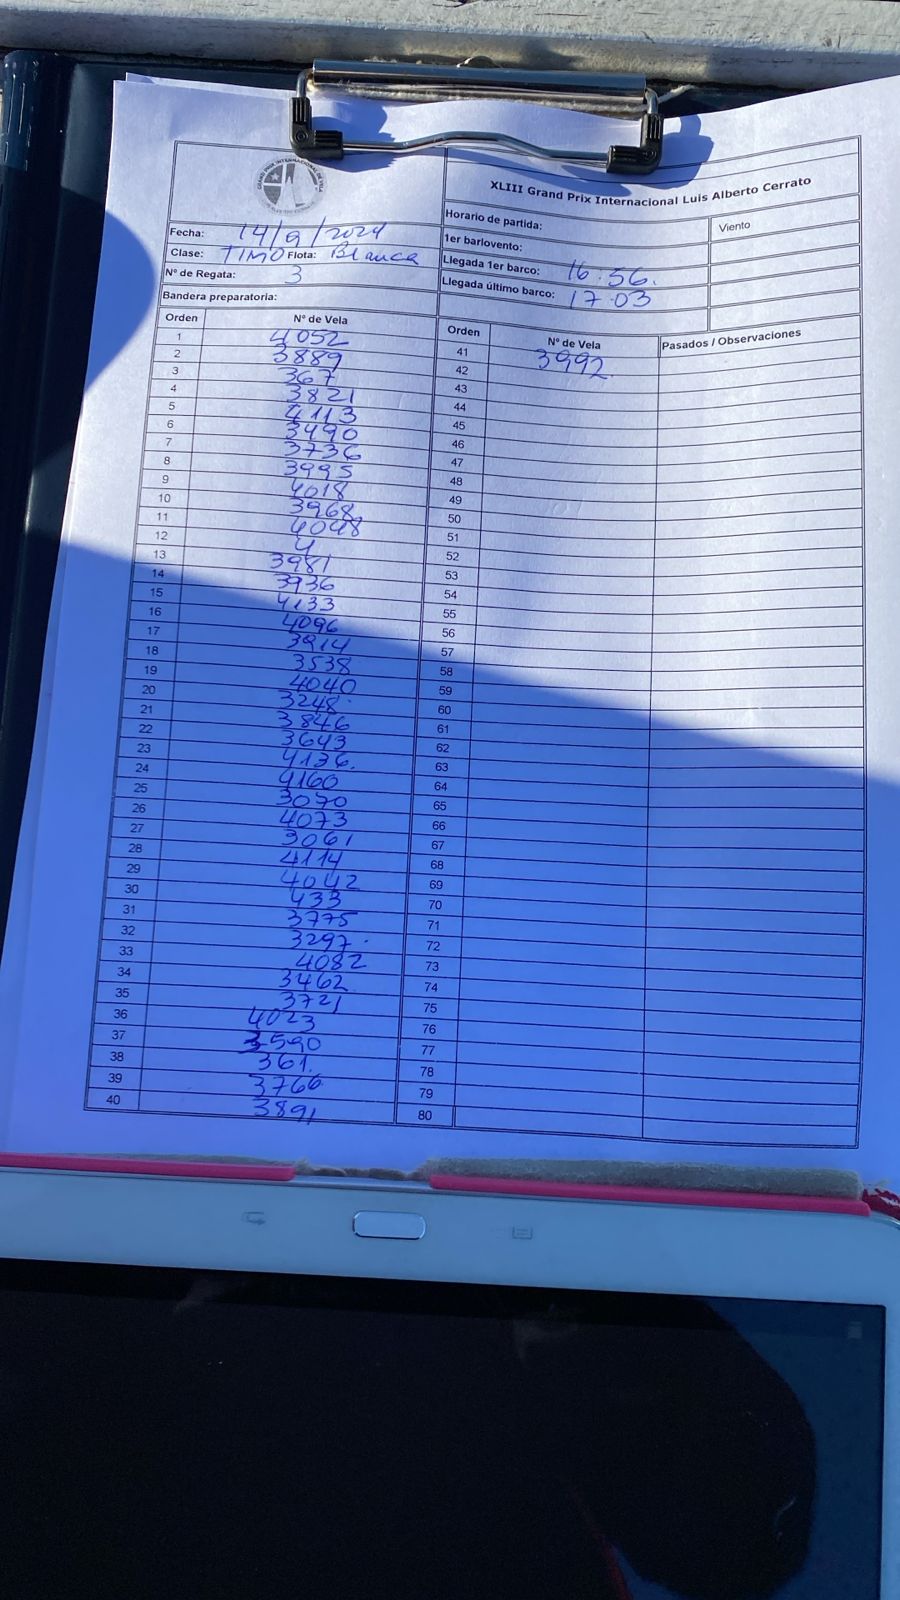 XLIII Grand Prix Internacional Luis Alberto Cerrato
Fecha: 14/9/2024
Clase: TIMO Flota: Blanca
Nº de Regata: 3
Bandera preparatoria:
Horario de partida:
1er barlovento:
Llegada 1er barco: 16.56.
Llegada último barco: 17.03
Viento
Orden Nº de Vela
1 4052
2 3889
3 367
4 3821
5 4113
6 3490
7 3736
8 3995
9 4018
10 3968
11 4048
12 4
13 3981
14 3936
15 4133
16 4096
17 3914
18 3538
19 4040
20 3248
21 3846
22 3643
23 4136.
24 4160
25 3070
26 4073
27 3061
28 4114
29 4042
30 433
31 3775
32 3297.
33 4082
34 3462
35 3721
36 4023
37 3590
38 361.
39 3766
40 3891
Orden Nº de Vela Pasados / Observaciones
41 3992.
42
43
44
45
46
47
48
49
50
51
52
53
54
55
56
57
58
59
60
61
62
63
64
65
66
67
68
69
70
71
72
73
74
75
76
77
78
79
80